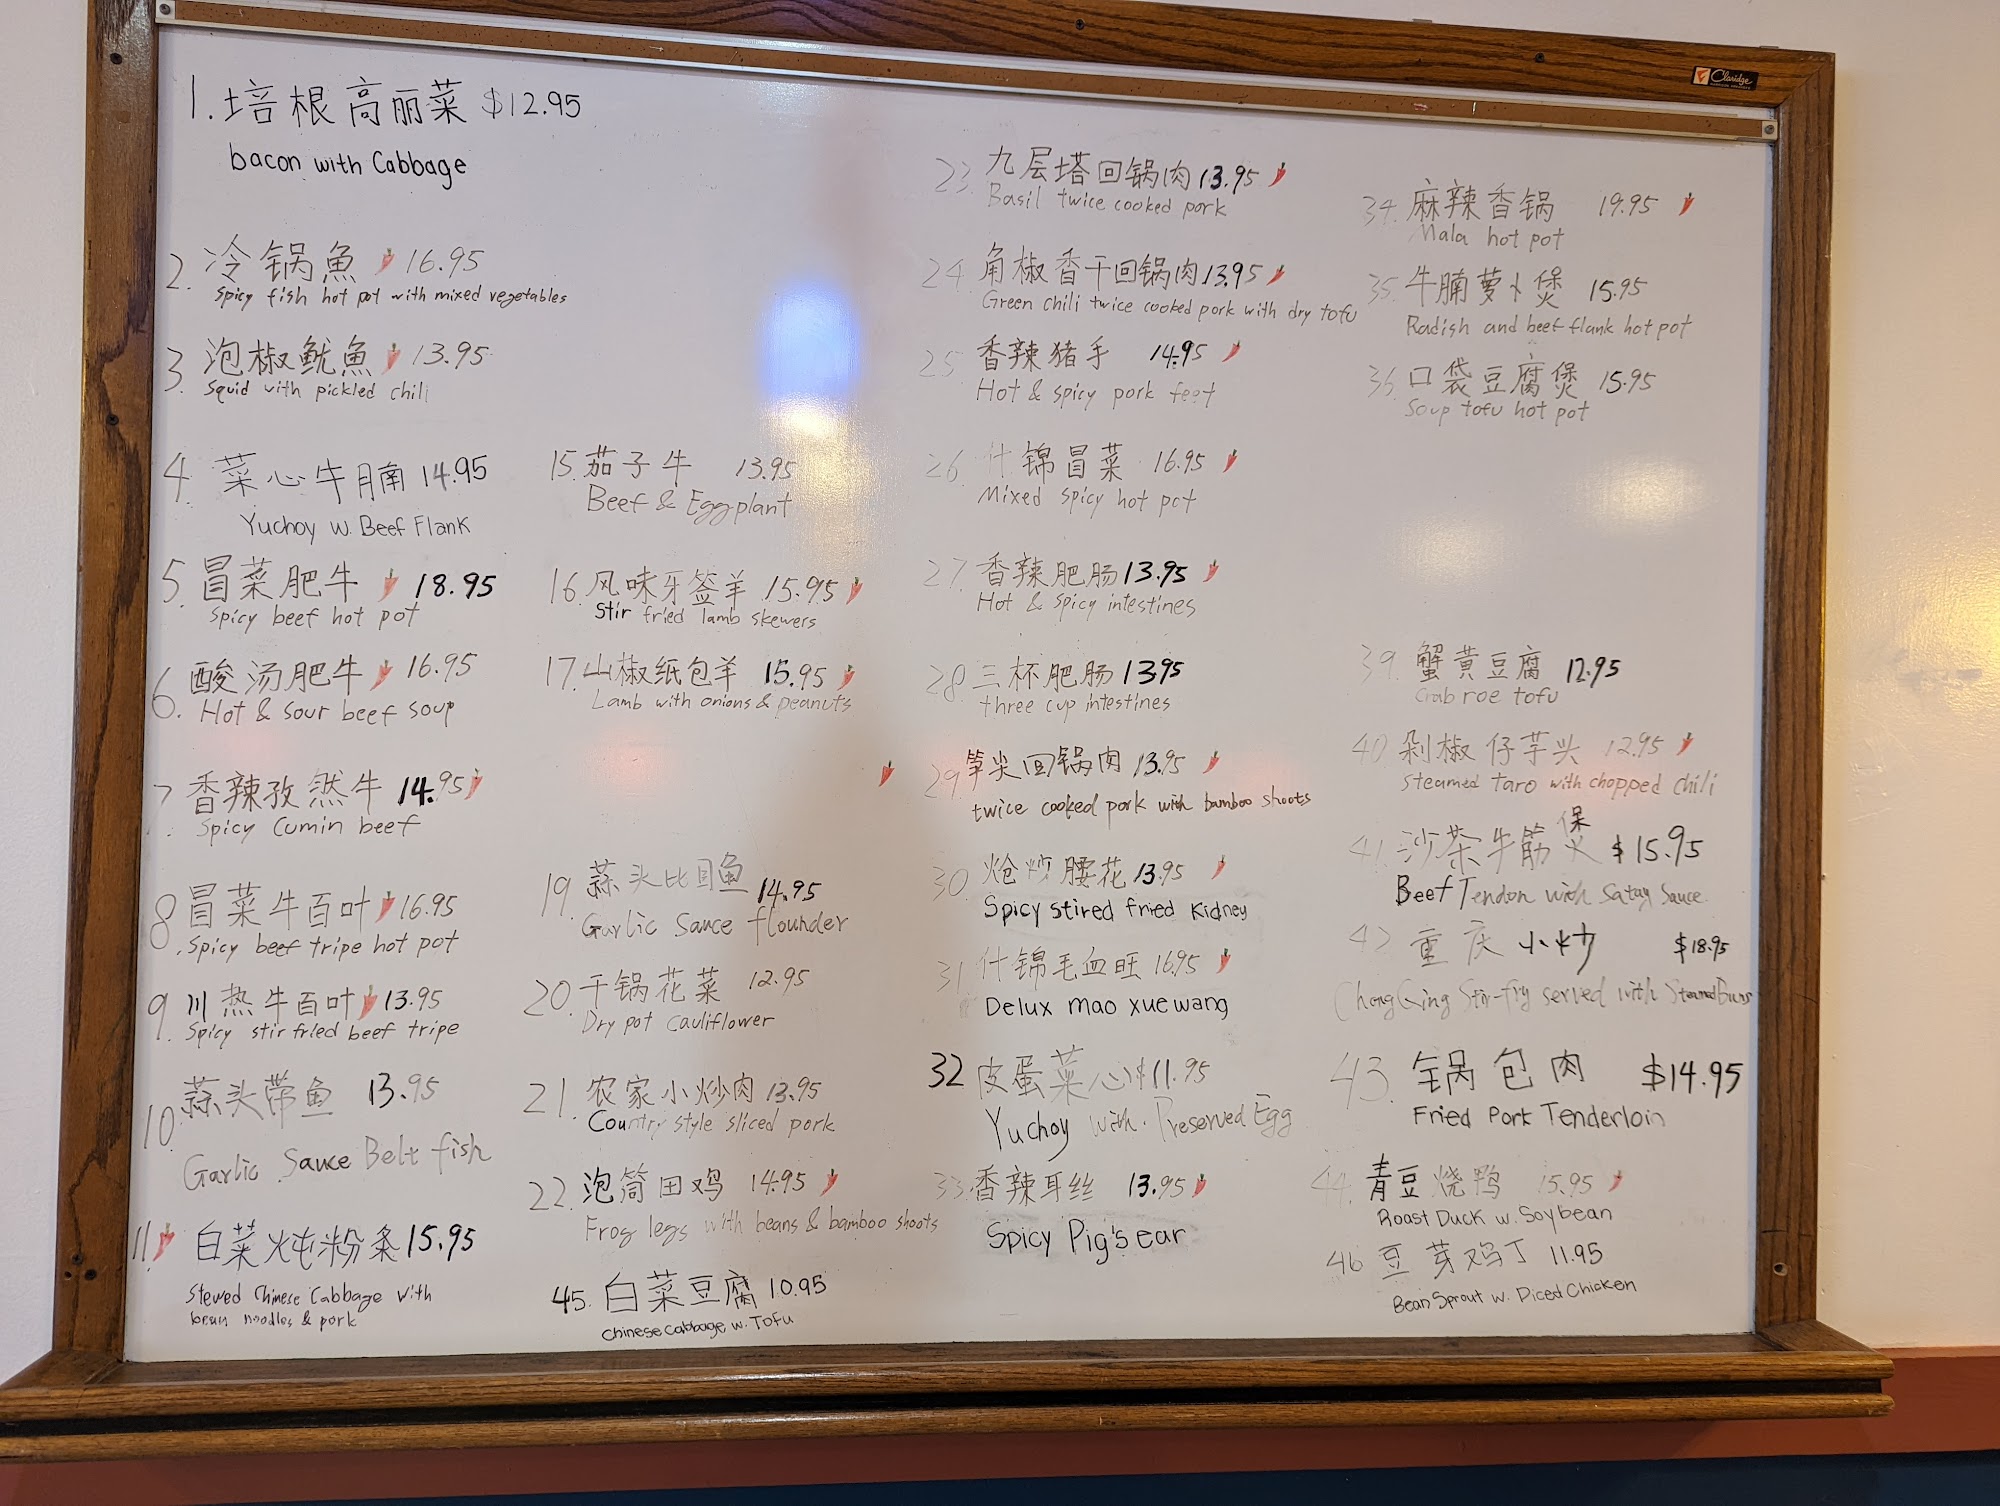 Claridge
1. 培根高丽菜 $12.95
bacon with Cabbage
2. 冷锅魚 16.95
Spicy fish hot pot with mixed vegetables
3. 泡椒鱿魚 13.95
Squid with pickled chili
4. 菜心牛腩 14.95
Yuchoy w. Beef Flank
5. 冒菜肥牛 18.95
Spicy beef hot pot
6. 酸汤肥牛 16.95
Hot & sour beef soup
7. 香辣孜然牛 14.95
Spicy Cumin beef
8. 冒菜牛百叶 16.95
Spicy beef tripe hot pot
9. 川热牛百叶 13.95
Spicy stir fried beef tripe
10. 蒜头带鱼 13.95
Garlic Sauce Belt fish
11. 白菜炖粉条 15.95
Stewed Chinese Cabbage with
bean noodles & pork
15. 茄子牛 13.95
Beef & Eggplant
16. 风味牙签羊 15.95
Stir fried lamb skewers
17. 山椒纸包羊 15.95
Lamb with onions & peanuts
19. 蒜头比目鱼 14.95
Garlic Sauce flounder
20. 干锅花菜 12.95
Dry pot Cauliflower
21. 农家小炒肉 13.95
Country style sliced pork
22. 泡筒田鸡 14.95
Frog legs with beans & bamboo shoots
45. 白菜豆腐 10.95
Chinese cabbage w. Tofu
23. 九层塔回锅肉 13.95
Basil twice cooked pork
24. 角椒香干回锅肉 13.95
Green chili twice cooked pork with dry tofu
25. 香辣猪手 14.95
Hot & spicy pork feet
26. 什锦冒菜 16.95
Mixed spicy hot pot
27. 香辣肥肠 13.95
Hot & spicy intestines
28. 三杯肥肠 13.95
three cup intestines
29. 笋尖回锅肉 13.95
twice cooked pork with bamboo shoots
30. 炝炒腰花 13.95
Spicy stired fried Kidney
31. 什锦毛血旺 16.95
Delux mao xue wang
32 皮蛋菜心 $11.95
Yuchoy with. Preserved Egg
33. 香辣耳丝 13.95
Spicy Pig's ear
34. 麻辣香锅 19.95
Mala hot pot
35. 牛腩萝卜煲 15.95
Radish and beef flank hot pot
36. 口袋豆腐煲 15.95
Soup tofu hot pot
39. 蟹黄豆腐 12.95
Crab roe tofu
40. 剁椒仔芋头 12.95
Steamed taro with chopped chili
41. 沙茶牛筋煲 $15.95
Beef Tendon with Satay Sauce
42. 重庆小炒 $18.95
ChongQing Stir-fry served with Steamed Buns
43. 锅包肉 $14.95
Fried Pork Tenderloin
44. 青豆烧鸭 15.95
Roast Duck w. Soybean
46 豆芽鸡丁 11.95
Bean Sprout w. Diced Chicken